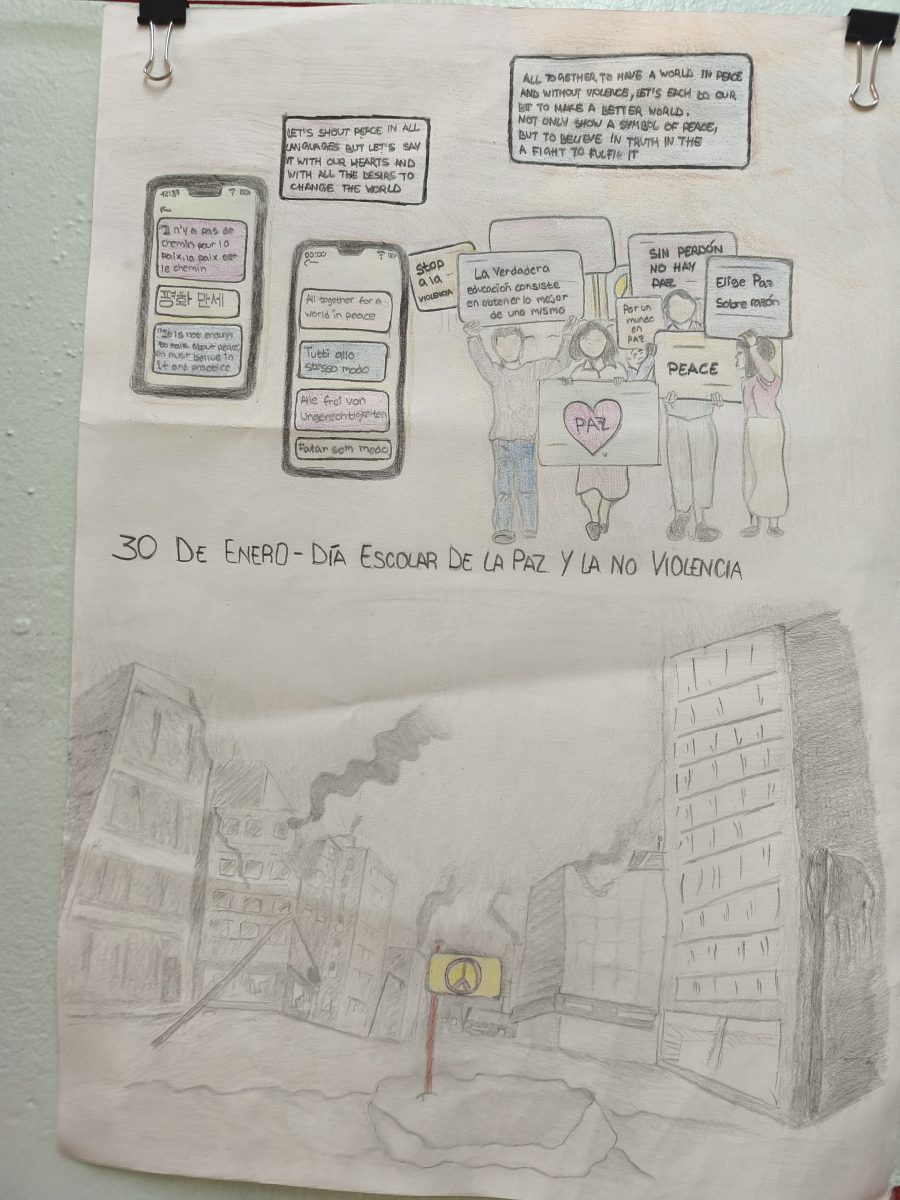 ALL TOGETHER TO HAVE A WORLD IN PEACE
AND WITHOUT VIOLENCE, LET'S EACH DO OUR
BIT TO MAKE A BETTER WORLD.
NOT ONLY SHOW A SYMBOL OF PEACE,
BUT TO BELIEVE IN TRUTH IN THE
A FIGHT TO FULFIL IT
LET'S SHOUT PEACE IN ALL
LANGUAGES BUT LET'S SAY
IT WITH OUR HEARTS AND
WITH ALL THE DESIRE TO
CHANGE THE WORLD
Il n'y a pas de
chemin pour la
paix, la paix est
le chemin
평화 만세
"It is not enough
to talk about peace
on must believe in
it and practice
00:00
All together for a
world in peace
Tutti allo
stesso modo
Alle frei von
Ungerechtigkeiten
Falar sem medo
Stop
a la
VIOLENCIA
La Verdadera
educación consiste
en obtener lo mejor
de uno mismo
SIN PERDÓN
NO HAY
PAZ
Elige Paz
Sobre razón
Por un
mundo
en
PAZ
PEACE
PAZ
30 DE ENERO - DÍA ESCOLAR DE LA PAZ Y LA NO VIOLENCIA